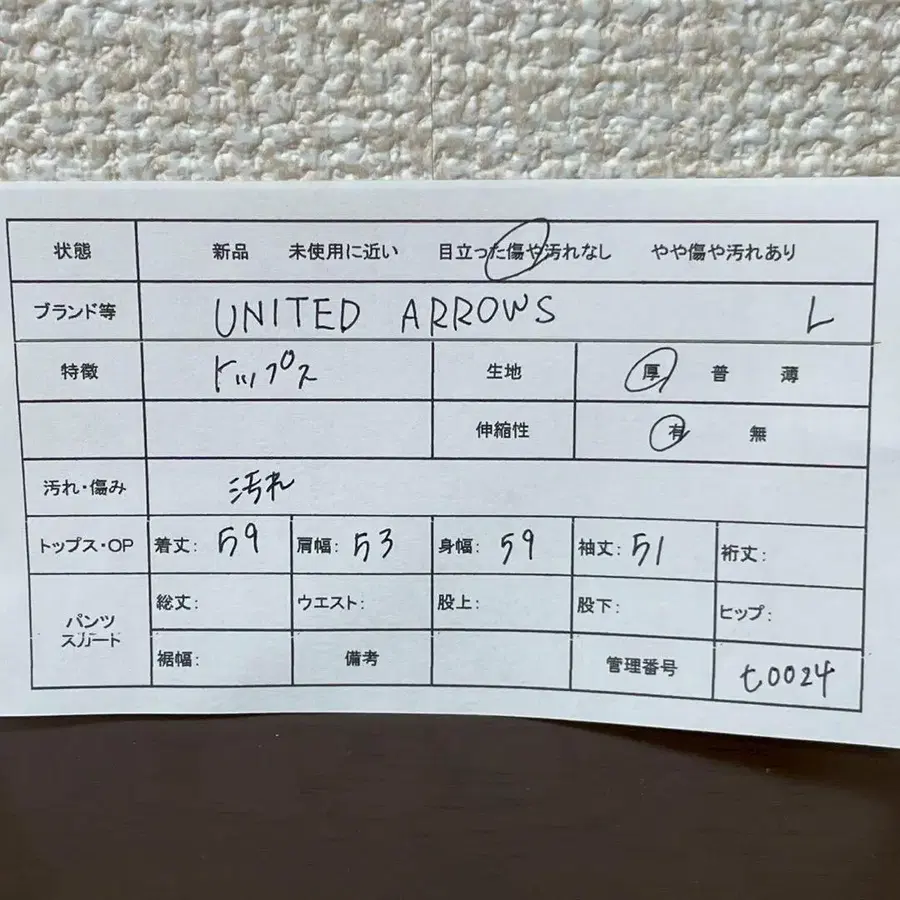 状態 新品 未使用に近い 目立った傷や汚れなし やや傷や汚れあり
ブランド等 UNITED ARROWS L
特徴 トップス 生地 厚 普 薄
伸縮性 有 無
汚れ・傷み 汚れ
トップス・OP 着丈: 59 肩幅: 53 身幅: 59 袖丈: 51 裄丈:
パンツ 総丈: ウエスト: 股上: 股下: ヒップ:
スカート
裾幅: 備考 管理番号 t0024